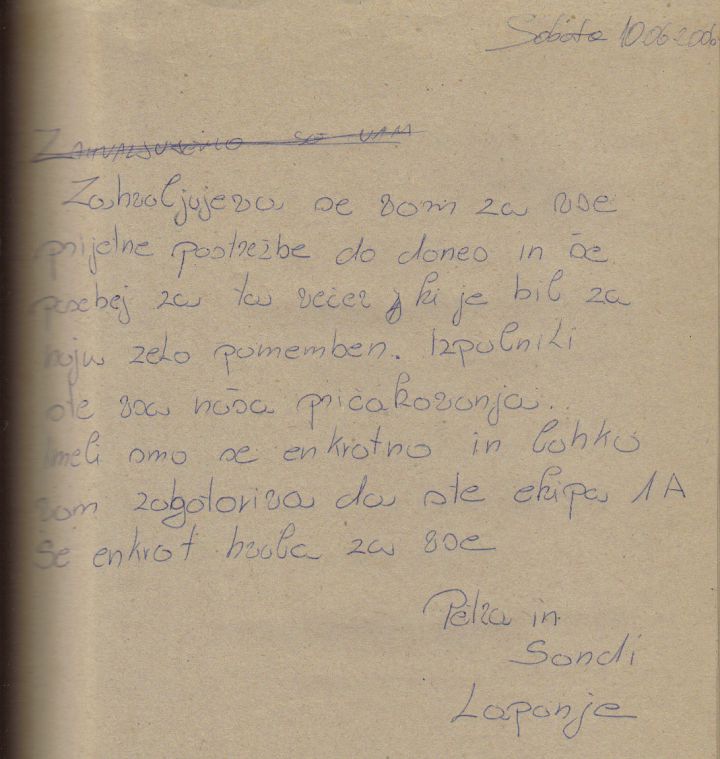 Sobota 10.06.2006
Zahvaljujemo se vam
Zahvaljujeva se vam za vse
prijetne postrežbe do danes in še
posebej za ta večer, ki je bil za
naju zelo pomemben. Izpolnili
ste vsa naša pričakovanja.
Imeli smo se enkratno in lahko
vam zagotoviva da ste ekipa 1A
Še enkrat hvala za vse
Petra in
Sandi
Lapanje